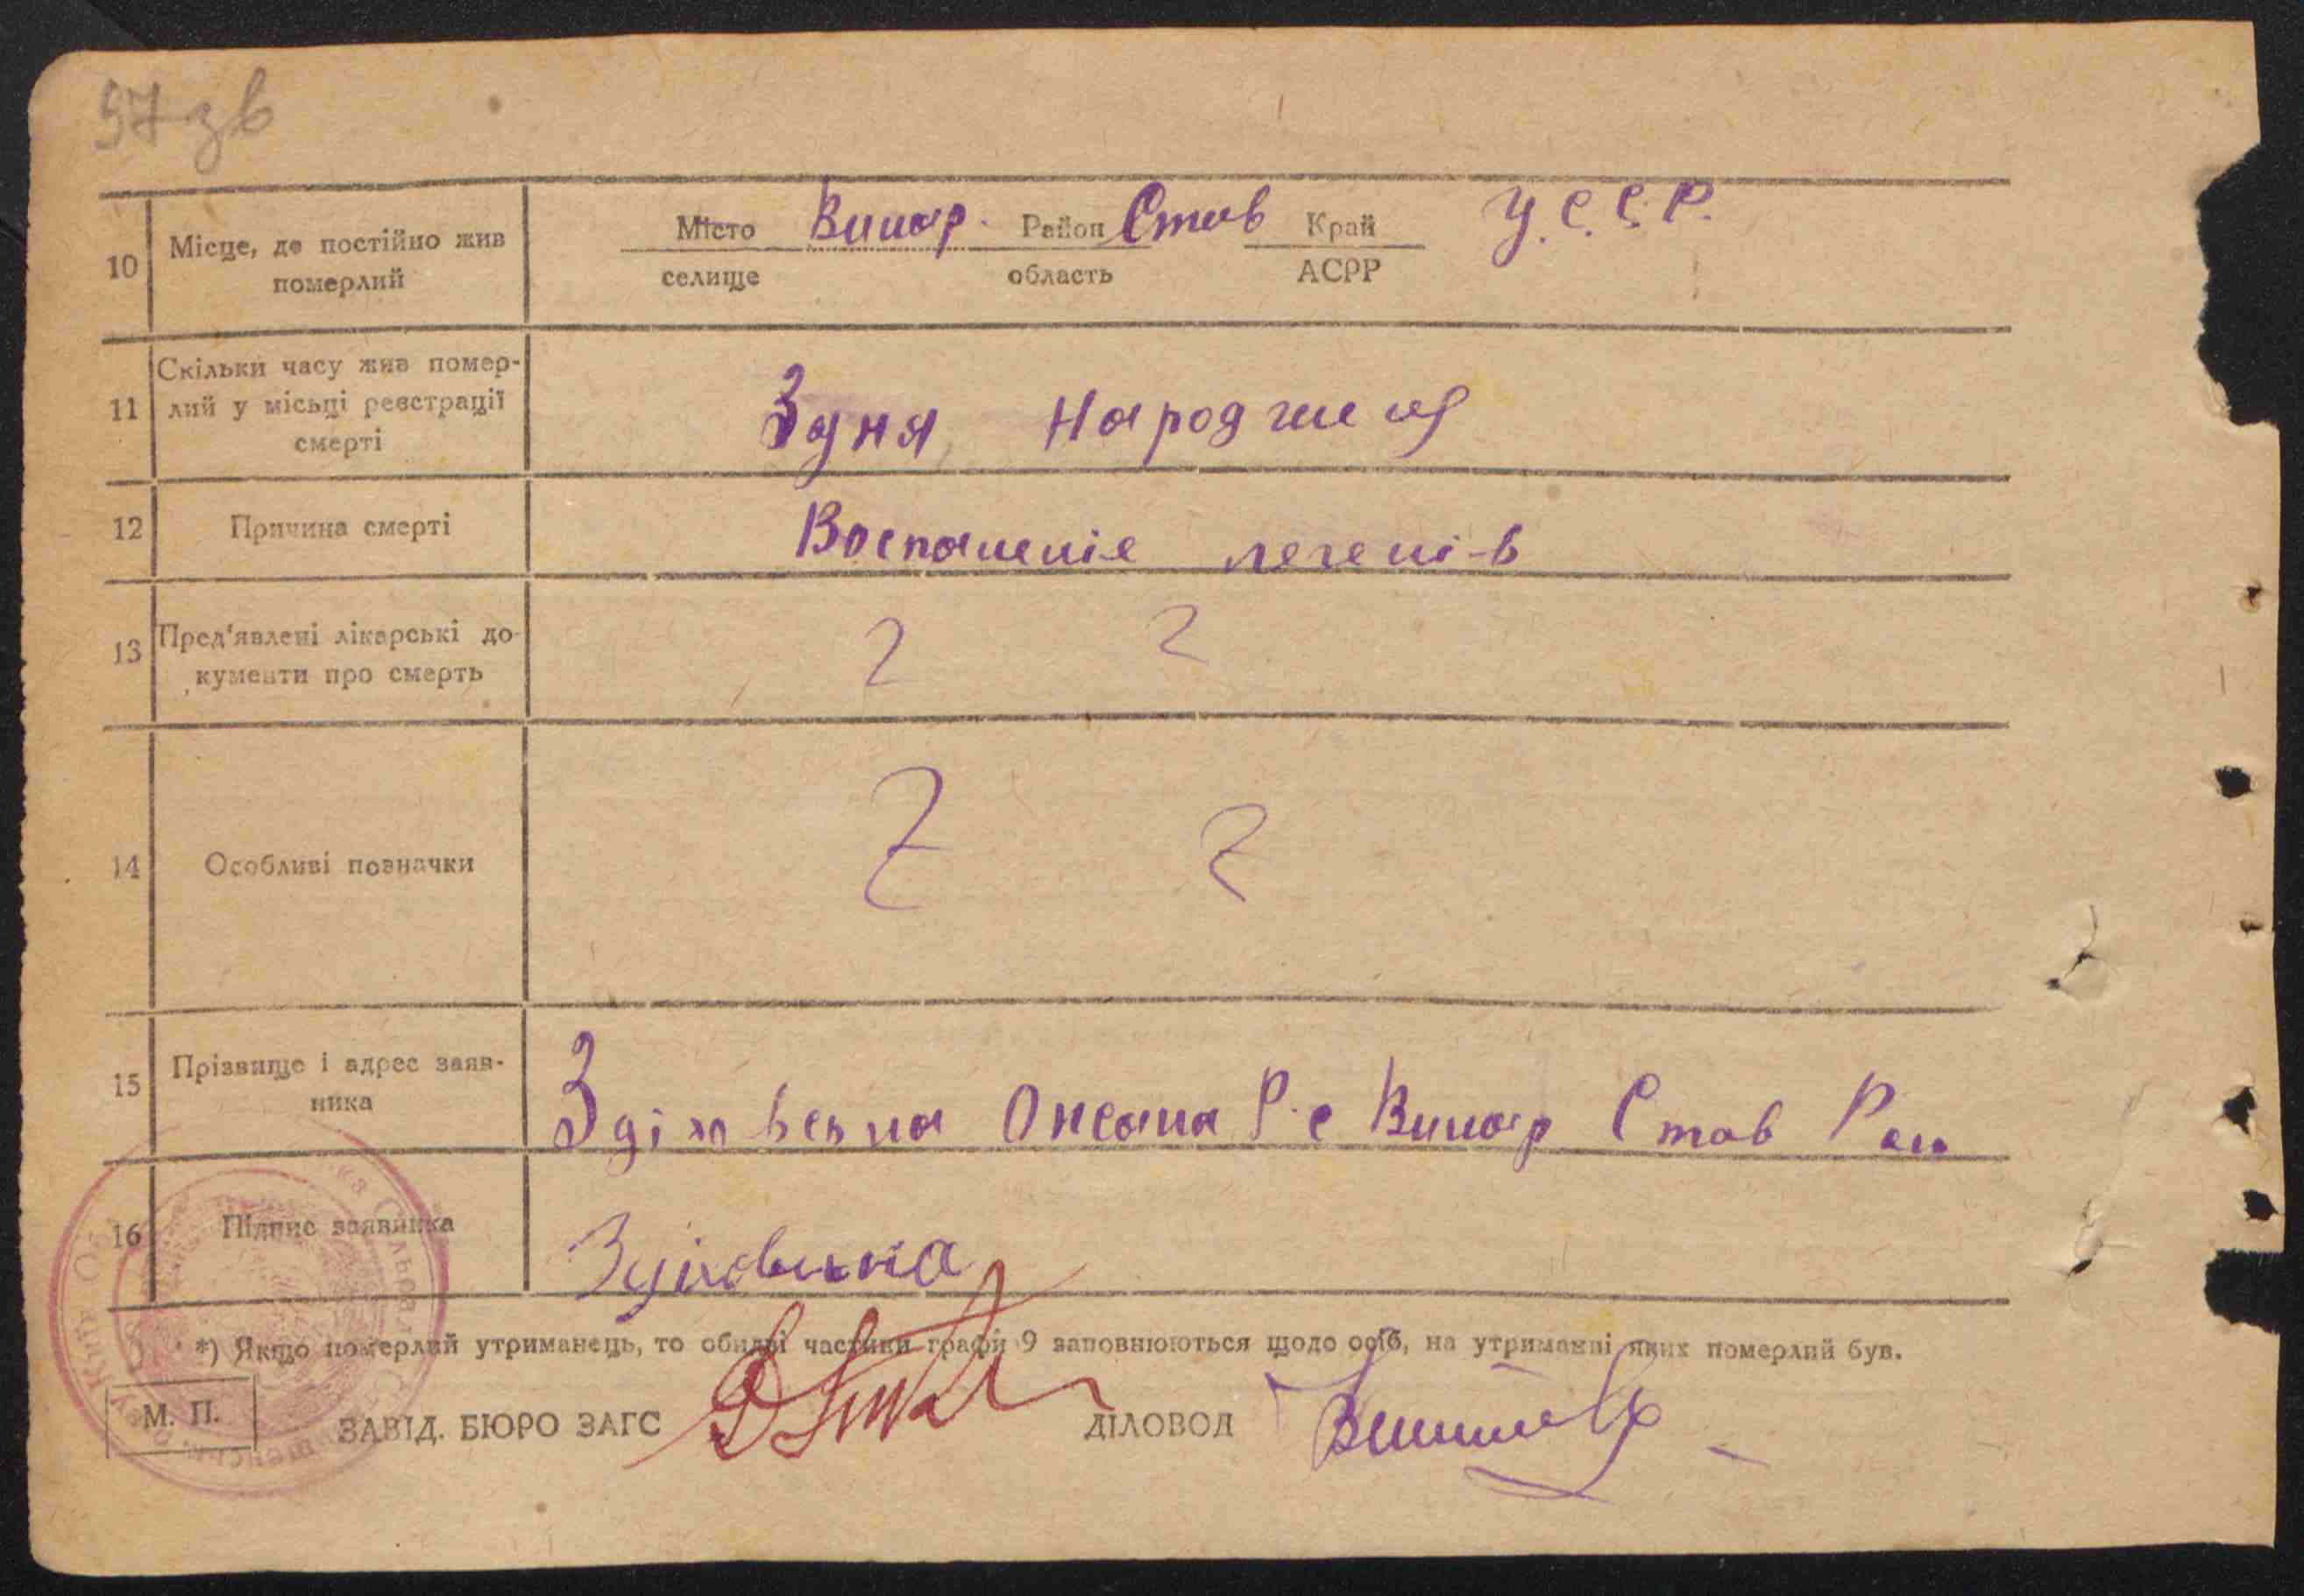 57 зв
10 Місце, де постійно жив
померлий
Місто Винар. Район Став Край У.С.С.Р.
селище область АСРР
11 Скільки часу жив помер-
лий у місьці реєстрації
смерті
З дня народженя
12 Причина смерті
Воспаленіе легені-в
13 Пред'явлені лікарські до-
кументи про смерть
14 Особливі позначки
15 Прізвище і адрес заяв-
ника
Оксана Р. с Винар Став Рай
16 Підпис заявника
*) Якщо померлий утриманець, то обидві частини графи 9 заповнюються щодо осіб, на утриманні яких померлий був.
М. П.
ЗАВІД. БЮРО ЗАГС
ДІЛОВОД